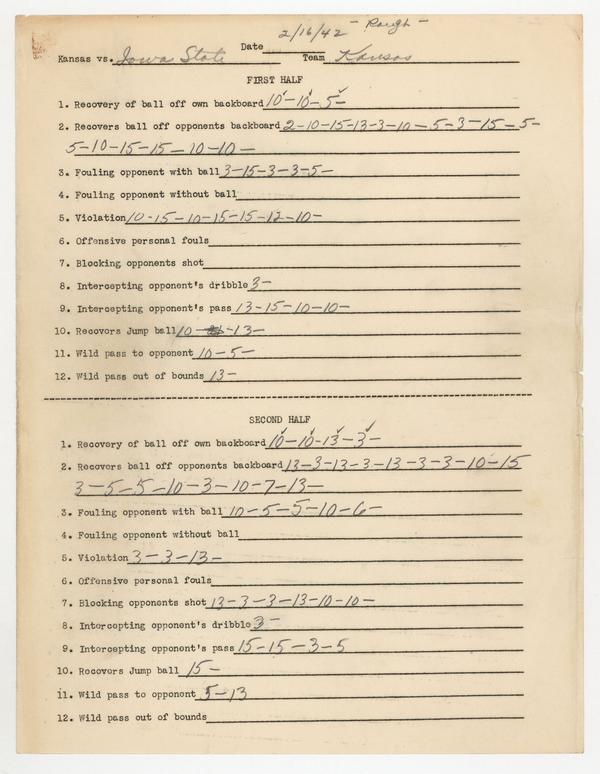 2/16/42 - Rough -
Date
Kansas vs. Iowa State Team Kansas
FIRST HALF
1. Recovery of ball off own backboard 10-10-5-
2. Recovers ball off opponents backboard 2-10-15-13-3-10-5-3-15-5-
5-10-15-15-10-10-
3. Fouling opponent with ball 3-15-3-3-5-
4. Fouling opponent without ball
5. Violation 10-15-10-15-15-12-10-
6. Offensive personal fouls
7. Blocking opponents shot
8. Intercepting opponent's dribble 3-
9. Intercepting opponent's pass 13-15-10-10-
10. Recovers Jump ball 10-13-
11. Wild pass to opponent 10-5-
12. Wild pass out of bounds 13-
SECOND HALF
1. Recovery of ball off own backboard 10-10-13-3-
2. Recovers ball off opponents backboard 13-3-13-3-13-3-3-10-15
3-5-5-10-3-10-7-13-
3. Fouling opponent with ball 10-5-5-10-6-
4. Fouling opponent without ball
5. Violation 3-3-13-
6. Offensive personal fouls
7. Blocking opponents shot 13-3-3-13-10-10-
8. Intercepting opponent's dribble 3-
9. Intercepting opponent's pass 15-15-3-5
10. Recovers Jump ball 15-
11. Wild pass to opponent 5-13
12. Wild pass out of bounds